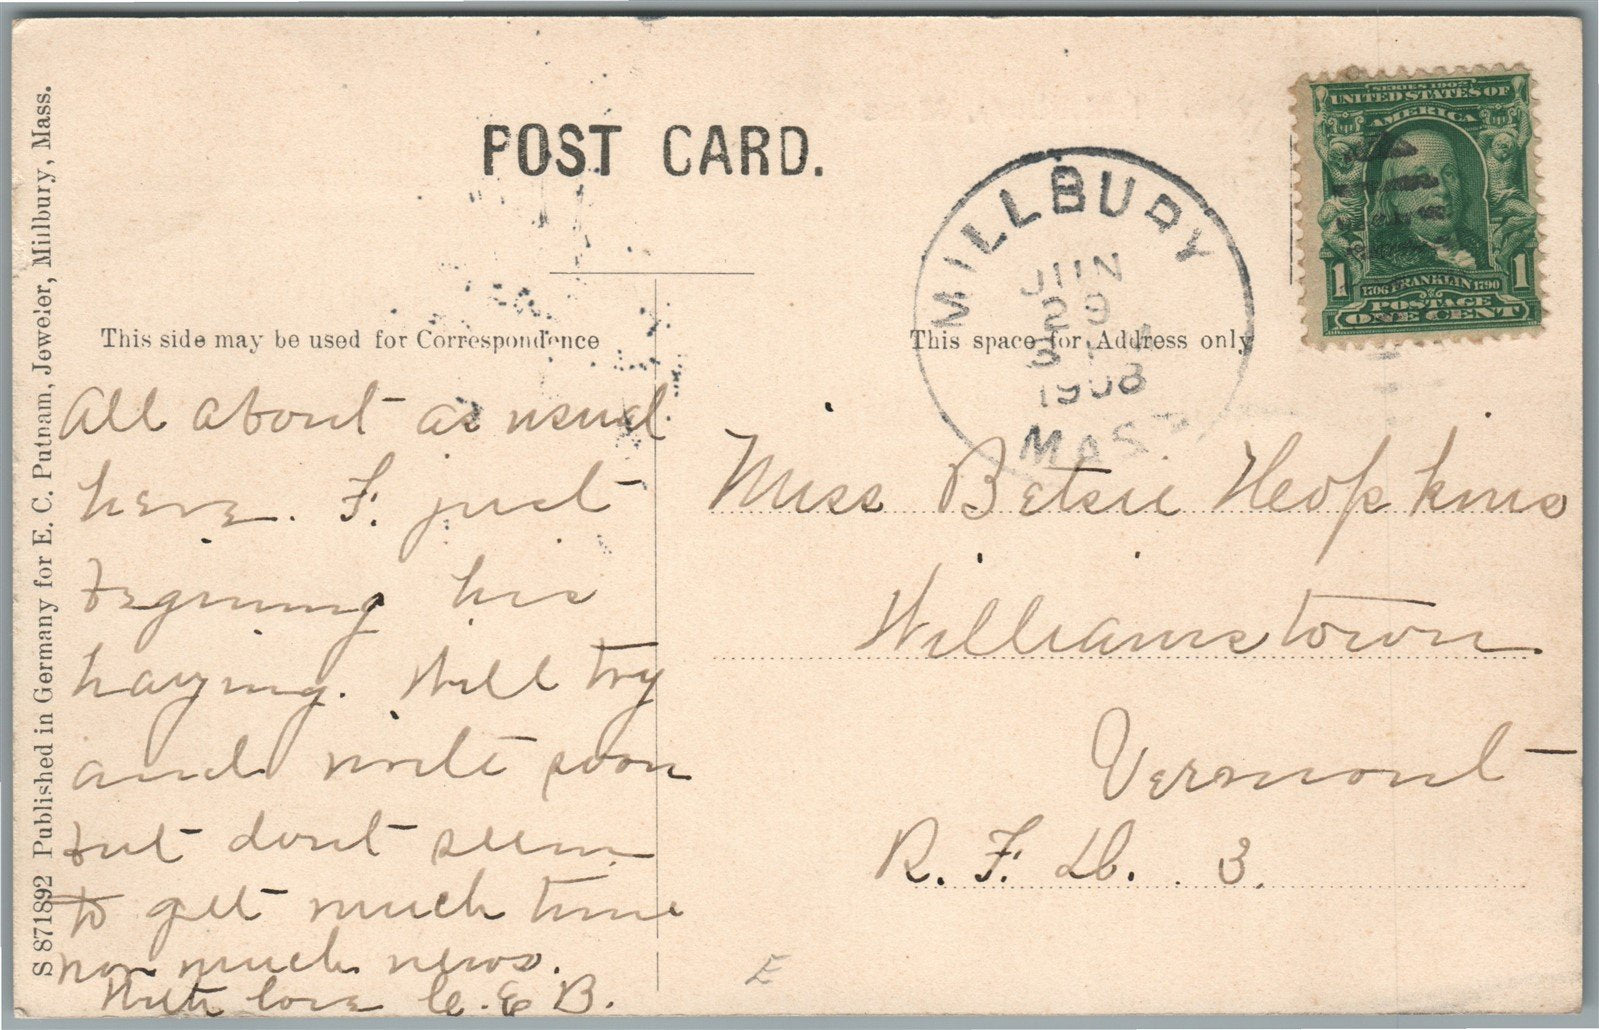 POST CARD.
SERIES 1902
UNITED STATES OF
AMERICA
1706 FRANKLIN 1790
1 1
POSTAGE
ONE CENT
MILLBURY
JUN
29
1908
MASS
This side may be used for Correspondence
This space for Address only
All about as usual
here. F. just
begining his
haying. Will try
and write soon
but dont seem
to get much time
nor much news.
With love C. E. B.
Miss Betsie Hopkins
Williamstown
Vermont
R. F. D. 3.
E
S 871892 Published in Germany for E. C. Putnam, Jeweler, Millbury, Mass.